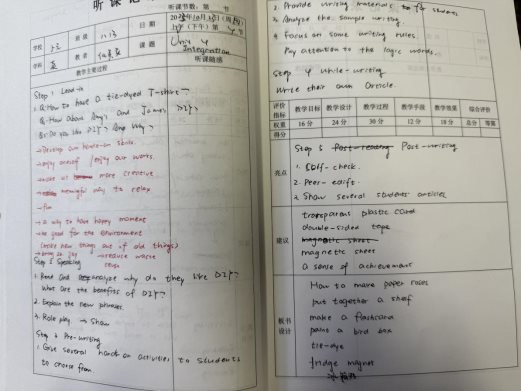 听课记
听课节数：第 节
学校
班级 八13
日期 2023年10月13日
第 节
学科 英
教者
课题 Unit 4
Integration
教学主要过程
听课随感
Step 1 Lead-in
1. Q: How to make a tie-dyed T-shirt?
Q: How about Amy's and James' DIY?
Q: Do you like DIY? And Why?
→ Develop our hands-on skills.
→ enjoy oneself / enjoy our works.
→ make us more creative
→ meaningful way to relax
→ fun
→ a way to have happy moment
→ be good for the environment
(make new things out of old things)
→ bring us joy → reduce waste
reuse
Step 2 Speaking
1. Read and analyze why do they like DIY?
What are the benefits of DIY?
2. Explain the new phrases.
3. Role play → Show
Step 3 Pre-writing
1. Give several hands-on activities to students
to choose from.
2. Provide writing materials to students
3. Analyze the sample writing.
4. Focus on some writing rules.
Pay attention to the logic words.
Step 4 While-writing
Write their own article.
评价指标 教学目标 教学设计 教学过程 教学手段 教学效果 综合评价
权重 16分 24分 30分 12分 18分 总分 等第
得分
亮点
Step 5 Post-writing
1. Self-check.
2. Peer-edit.
3. Show several students' articles
建议
transparent plastic card
double-sided tape
magnetic sheet
a sense of achievement
板书设计
How to make paper roses
put together a shelf
make a flashcard
paint a bird box
tie-dye
fridge magnet
冰箱贴